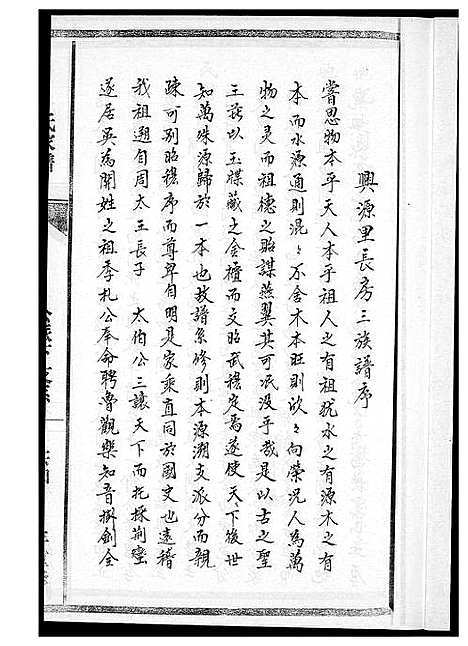 興源里長房三族譜序
嘗思物本乎天人本乎祖人之有祖犹水之有源木之有
本而水源通則混〻不舍木本旺則欣〻向榮况人為萬
物之灵而祖德之貽謀燕翼其可泯没乎哉是以古之聖
三路以玉牒藏之金櫃而文昭武穆定焉遂使天下後世
知萬殊源歸於一本也故譜系修則本源溯支派分而親
疎可别昭穆序而尊卑自明是家乘直同於國史也遠稽
我祖遡自周太王長子 太伯公三讓天下而托採荆蠻
遂居吳為開姓之祖季札公奉命聘魯觀樂知音掛劍全
氏家譜